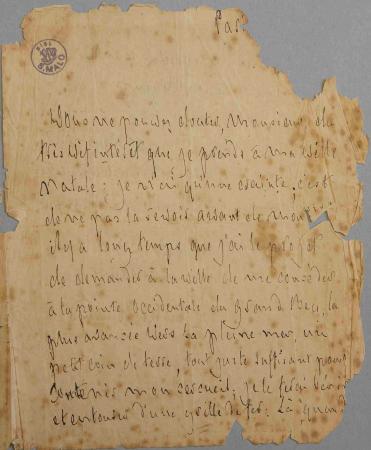 Par
S. MALO
Vous ne pouvez douter, Monsieur, du
très vif intérêt que je prends à ma ville
natale; je n'ai qu'une crainte, c'est
de ne pas la revoir avant de mourir
il y a longtemps que j'ai le projet
de demander à la ville de me concéder
à la pointe occidentale du Grand Bey, la
plus avancée vers la pleine mer, un
petit coin de terre, tout juste suffisant pour
contenir mon cercueil; je le ferai bénir
et entourer d'une grille de fer. Là, quand